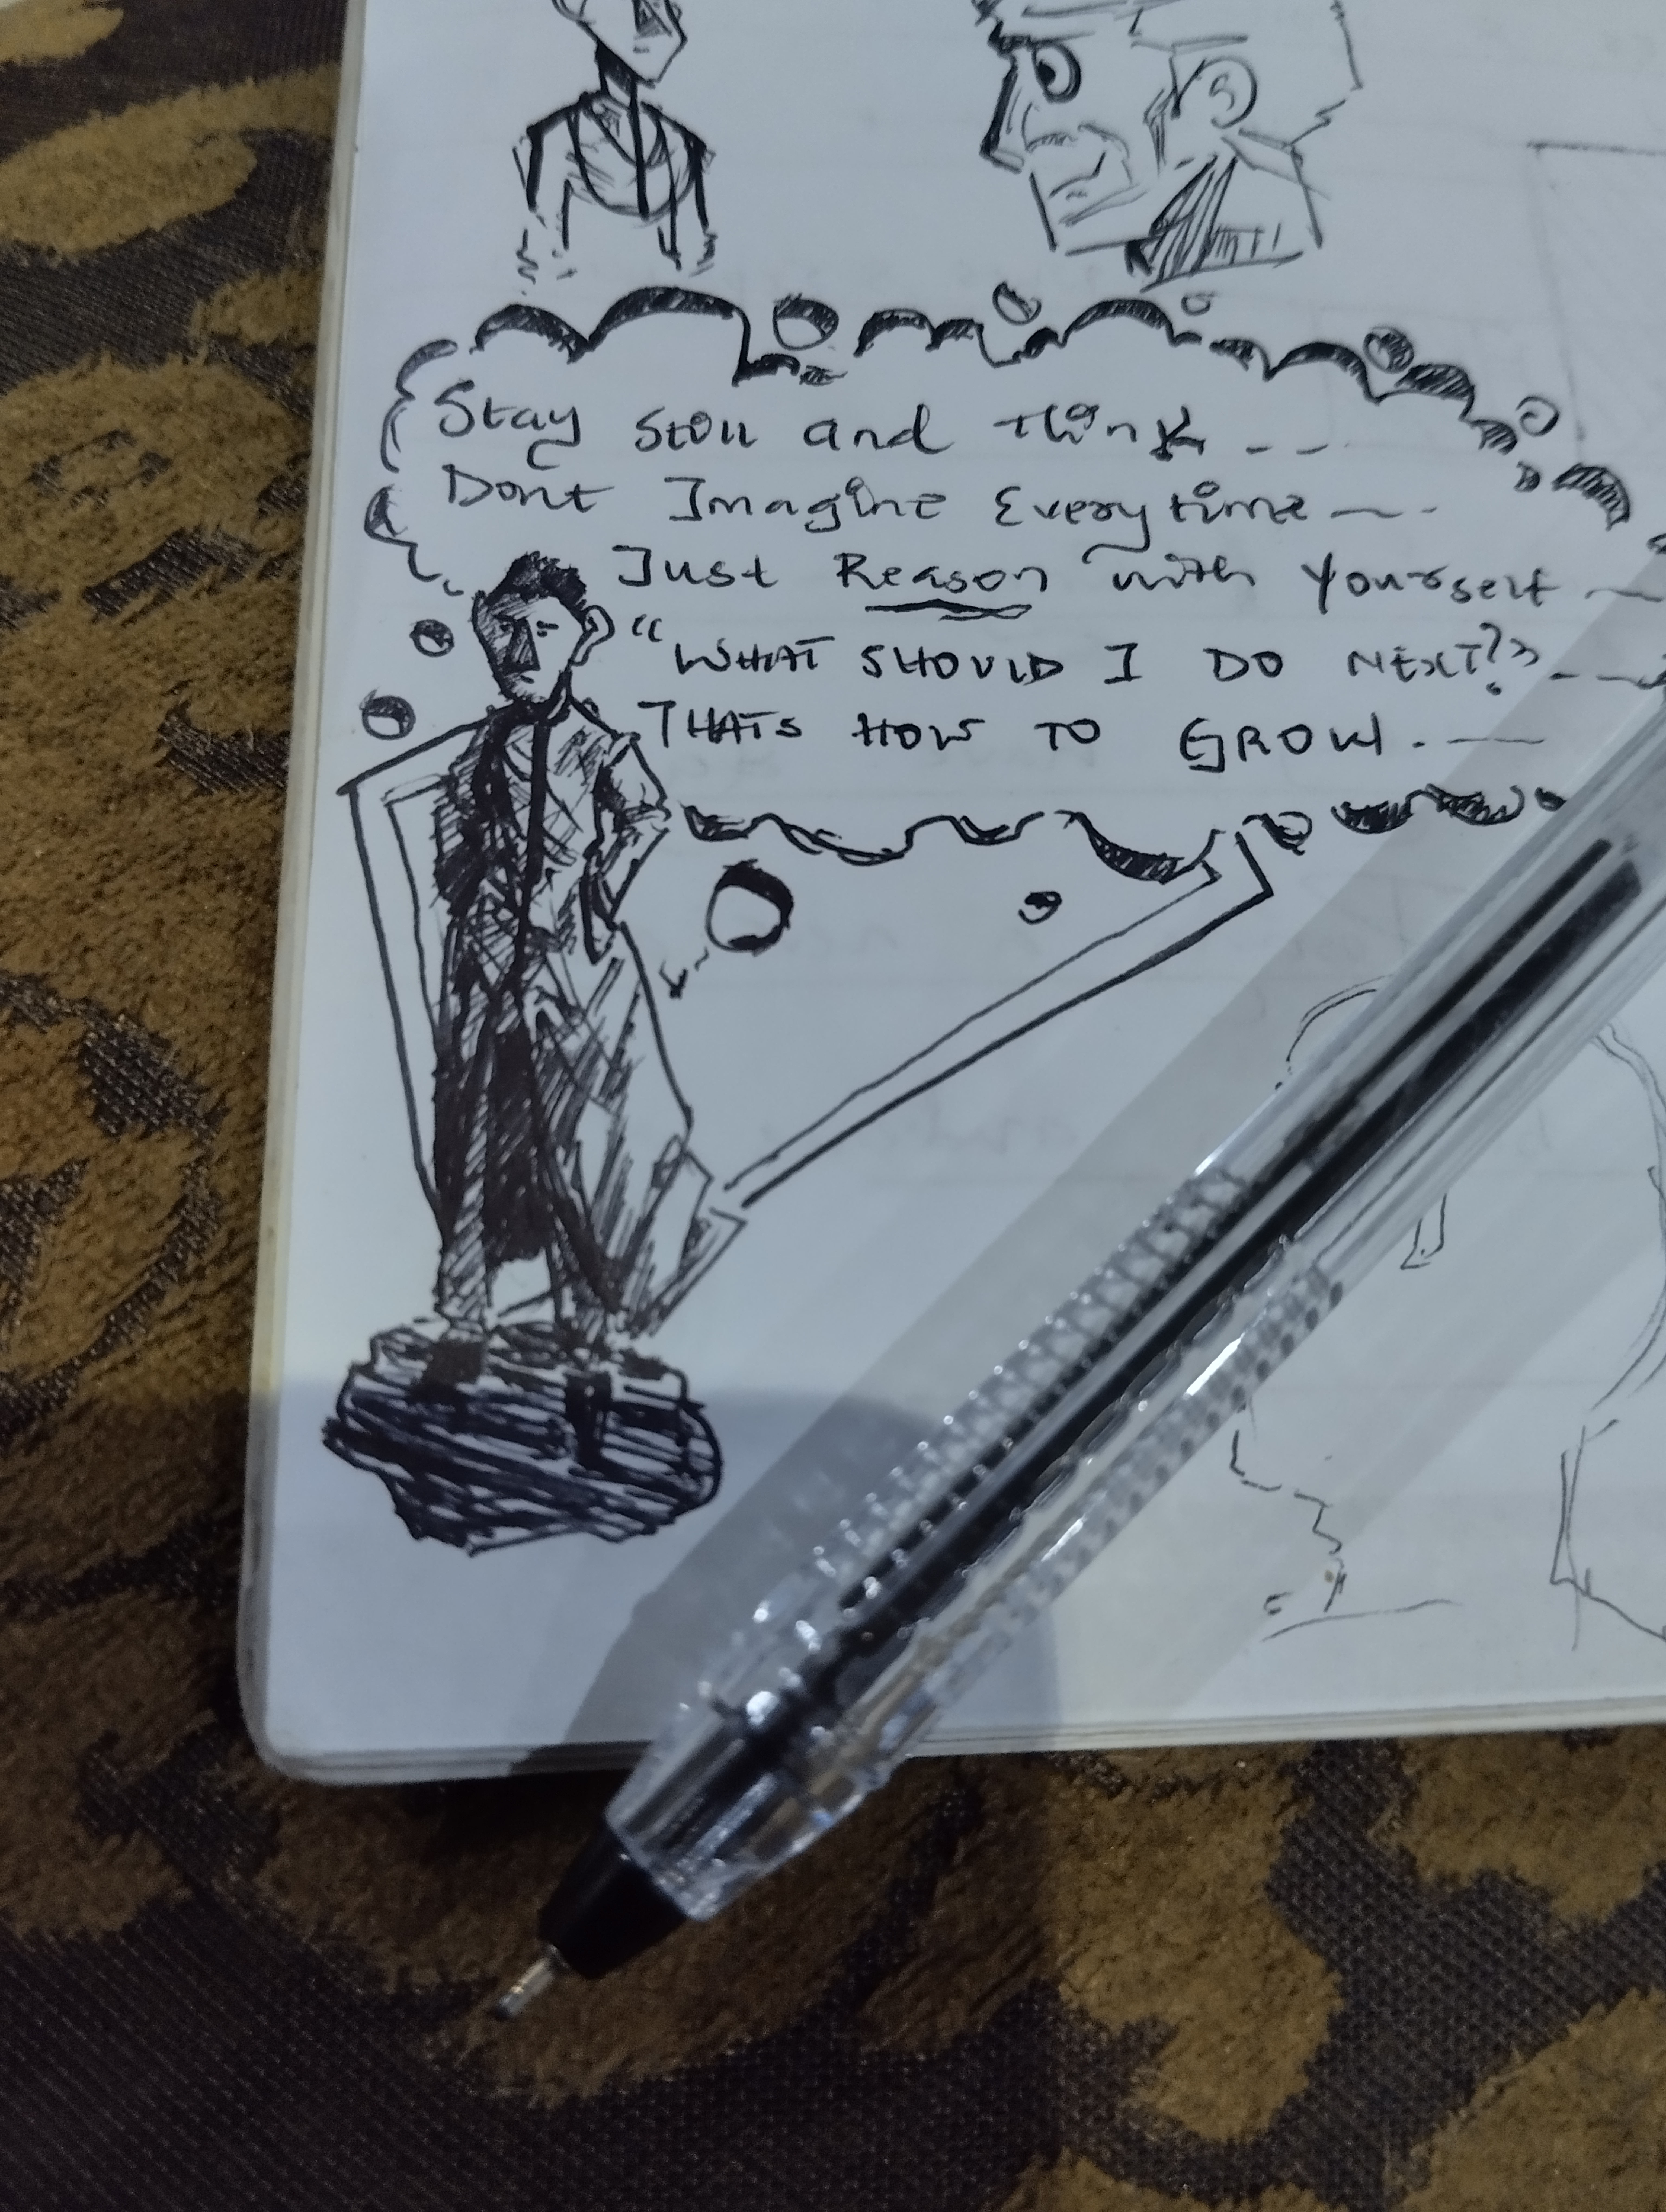 Stay Still and think - - -
Dont Imagine Everytime — -
Just Reason with yourself —
"WHAT SHOULD I DO NEXT?" - —
THATS HOW TO GROW. —